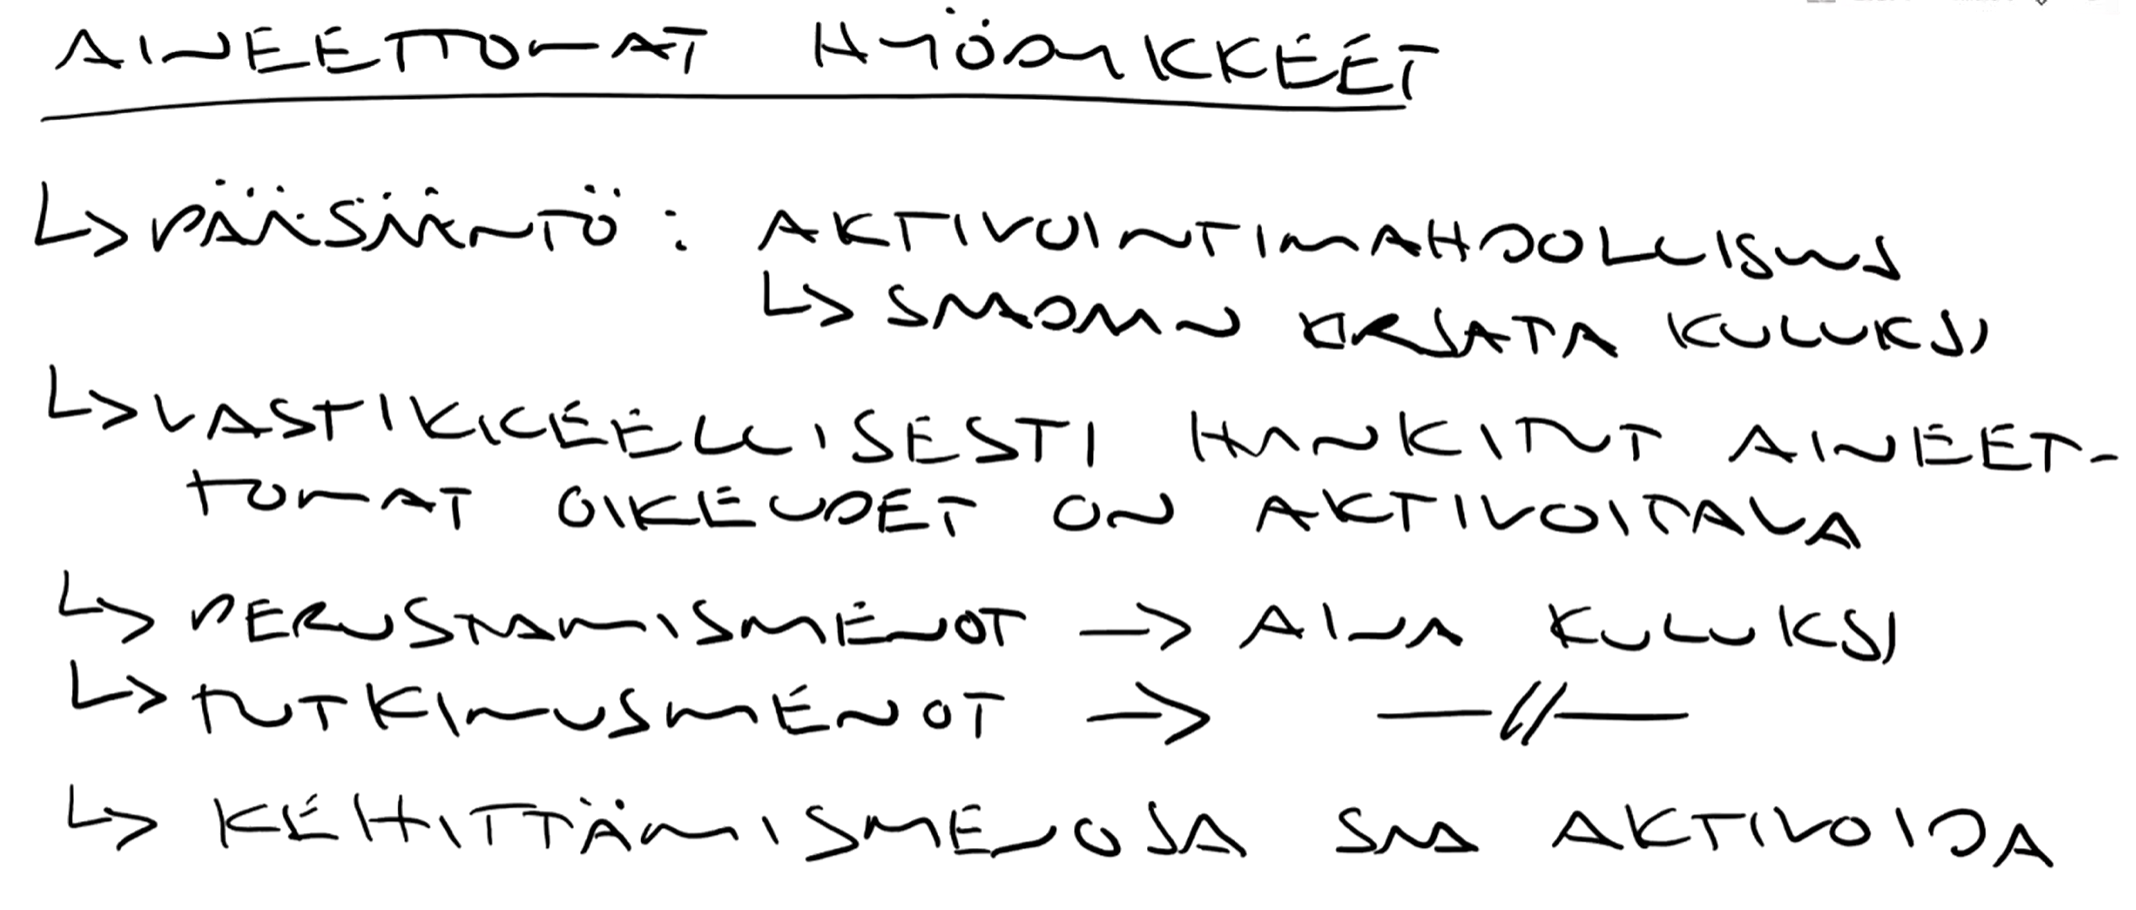 AINEETTOMAT HYÖDYKKEET
↳ PÄÄSÄÄNTÖ : AKTIVOINTIMAHDOLLISUUS
↳ SAADAAN KIRJATA KULUKSI
↳ VASTIKKEELLISESTI HANKITUT AINEET-
TOMAT OIKEUDET ON AKTIVOITAVA
↳ PERUSTAMISMENOT → AINA KULUKSI
↳ TUTKIMUSMENOT → —//—
↳ KEHITTÄMISMENOJA SAA AKTIVOIDA